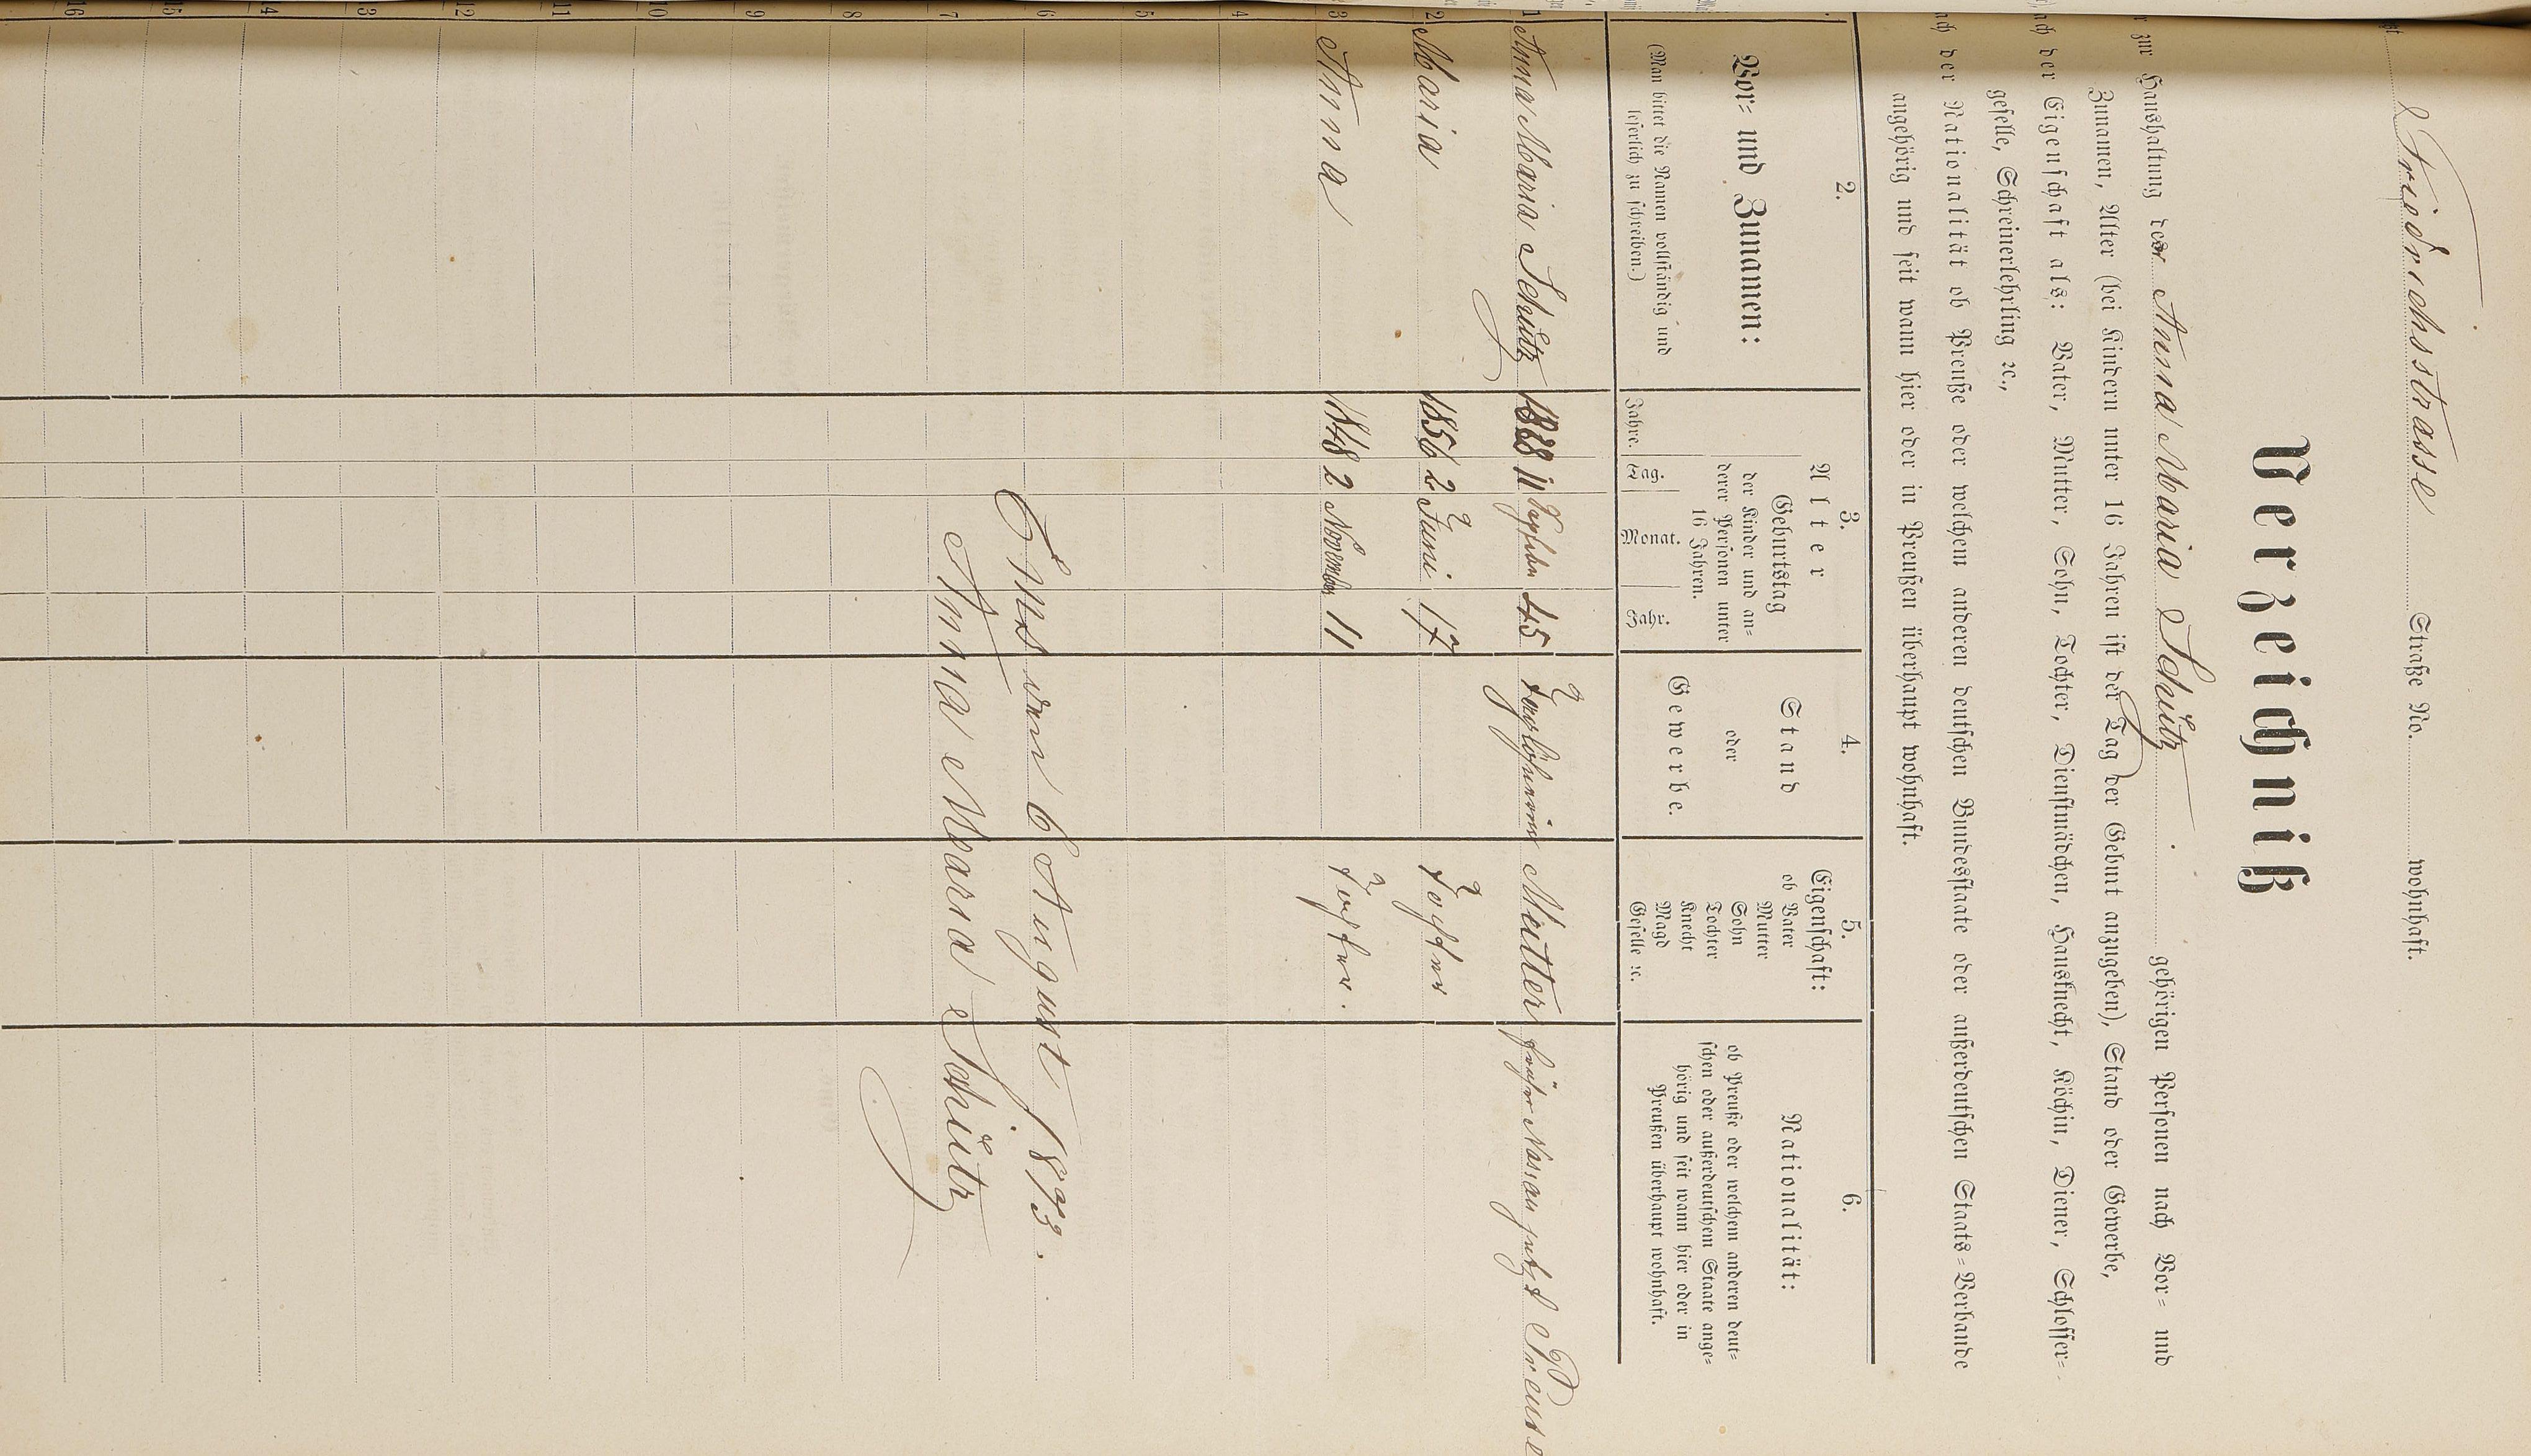 Friedrichsstrasse Straße No. wohnhaft.
Verzeichniß
r zur Haushaltung der Anna Maria Schütz gehörigen Personen nach Vor- und
Zunamen, Alter (bei Kindern unter 16 Jahren ist der Tag der Geburt anzugeben), Stand oder Gewerbe,
ach der Eigenschaft als: Vater, Mutter, Sohn, Tochter, Dienstmädchen, Hausknecht, Köchin, Diener, Schlosser-
geselle, Schreinerlehrling ꝛc.,
ach der Nationalität ob Preuße oder welchem anderen deutschen Bundesstaate oder außerdeutschen Staats-Verbande
angehörig und seit wann hier oder in Preußen überhaupt wohnhaft.
2. 3. 4. 5. 6.
Vor- und Zunamen:
(Man bittet die Namen vollständig und
leserlich zu schreiben.)
Alter
Geburtstag
der Kinder und an-
derer Personen unter
16 Jahren.
Jahre. Tag. Monat. Jahr.
Stand
oder
Gewerbe.
Eigenschaft:
ob Vater
Mutter
Sohn
Tochter
Knecht
Magd
Geselle ꝛc.
Nationalität:
ob Preuße oder welchem anderen deut-
schen oder außerdeutschem Staate ange-
hörig und seit wann hier oder in
Preußen überhaupt wohnhaft.
1 Anna Maria Schütz 1828 11 45 Taglöhnerin Mutter früher Nassau jetzt Preuse
2 Maria 1856 2 Juni 17 Tochter
3 Anna 1848 2 November 11 Tochter.
4
5
6 Ems den 6 August 1873.
7 Anna Maria Schütz
8
9
10
11
12
13
14
15
16